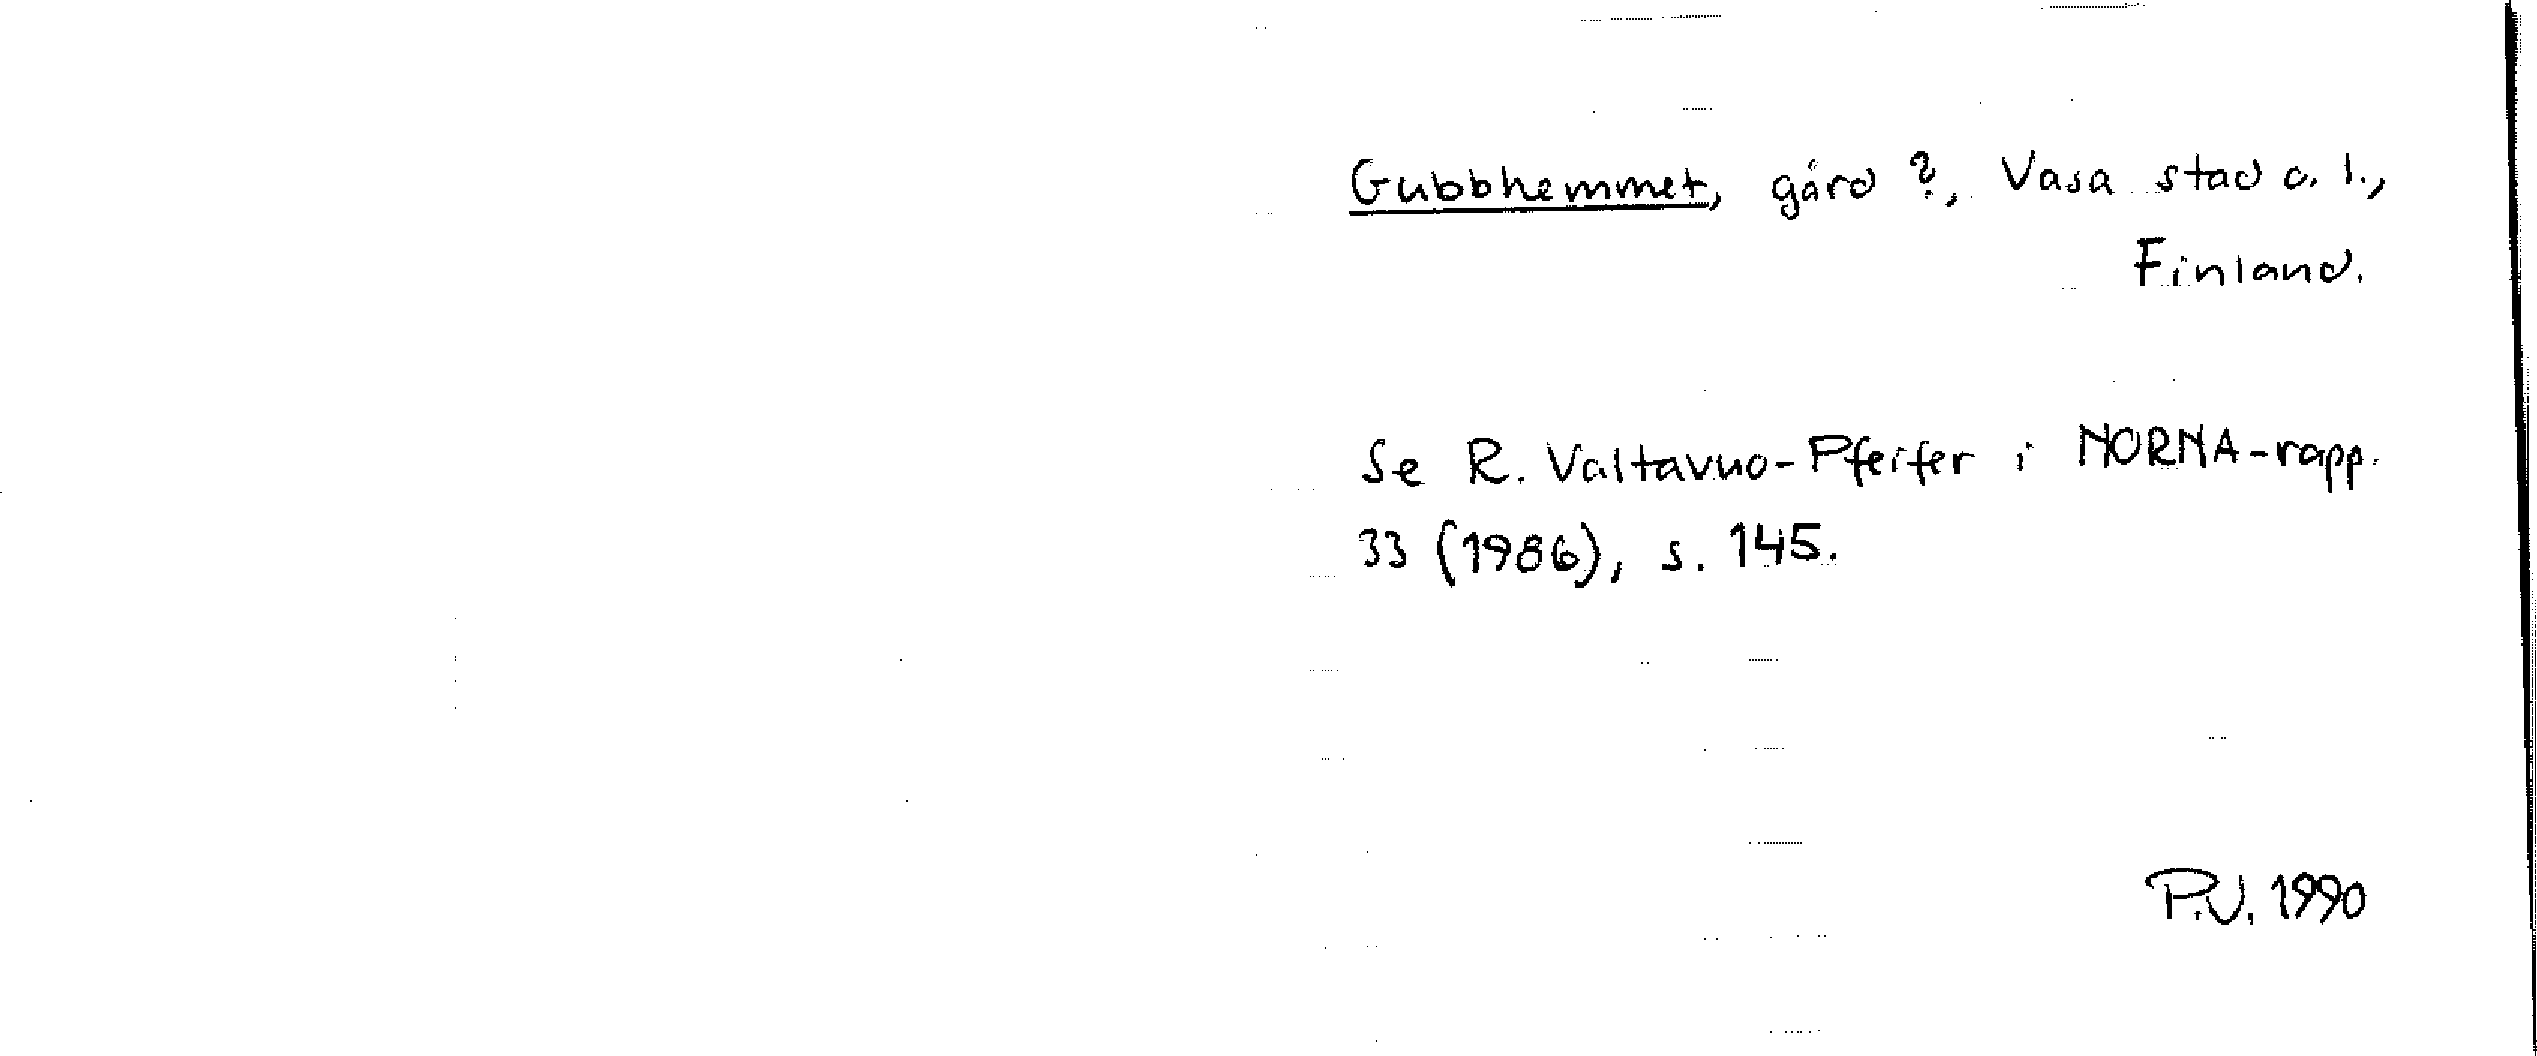 Gubbhemmet, gård ?, Vasa stad o. l.,
Finland.
Se R. Valtavuo-Pfeifer i NORNA-rapp.
33 (1986), s. 145.
P.V. 1990